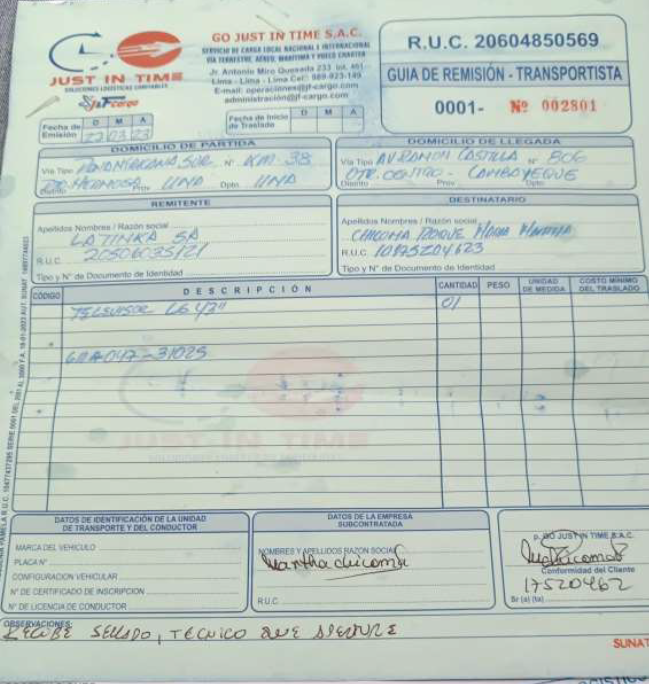 GO JUST IN TIME S.A.C.
SERVICIO DE CARGA LOCAL NACIONAL E INTERNACIONAL
VIA TERRESTRE, AEREO, MARITIMA Y
Jr. Antonio Miro Quesada 233 Int. 401
Lima - Lima - Lima Cel: 989-823-149
E-mail: operaciones@jf-cargo.com
administración@jf-cargo.com
JUST IN TIME
SOLUCIONES LOGISTICAS CONFIABLES
J&F cargo
R.U.C. 20604850569
GUIA DE REMISIÓN - TRANSPORTISTA
0001- Nº 002801
Fecha de Emisión D M A
27 03 23
Fecha de Inicio de Traslado D M A
DOMICILIO DE PARTIDA
Vía Tipo PANAMERICANA SUR Nº KM 38
Distrito Prov. LIMA Dpto. LIMA
DOMICILIO DE LLEGADA
Vía Tipo AV RAMON CASTILLA Nº 806
Distrito Prov. Dpto.
REMITENTE
Apellidos Nombres / Razón social
LA TINKA SA
R.U.C. 20506035121
Tipo y N° de Documento de Identidad
DESTINATARIO
Apellidos Nombres / Razón social
CHICOMA ROQUE
R.U.C. 10175204623
Tipo y N° de Documento de Identidad
CÓDIGO DESCRIPCIÓN CANTIDAD PESO UNIDAD DE MEDIDA COSTO MÍNIMO DEL TRASLADO
TELEVISOR LG 42" 01
JUST IN TIME
DATOS DE IDENTIFICACIÓN DE LA UNIDAD
DE TRANSPORTE Y DEL CONDUCTOR
MARCA DEL VEHICULO
PLACA N°
CONFIGURACION VEHICULAR
N° DE CERTIFICADO DE INSCRIPCION
N° DE LICENCIA DE CONDUCTOR
DATOS DE LA EMPRESA
SUBCONTRATADA
NOMBRES Y APELLIDOS RAZON SOCIAL
Martha chicoma
R.U.C.
p. GO JUST IN TIME S.A.C.
Conformidad del Cliente
17520462
Sr (a) (ta)
OBSERVACIONES:
RECIBE SELLADO, TECNICO QUE APERTURE
SUNAT